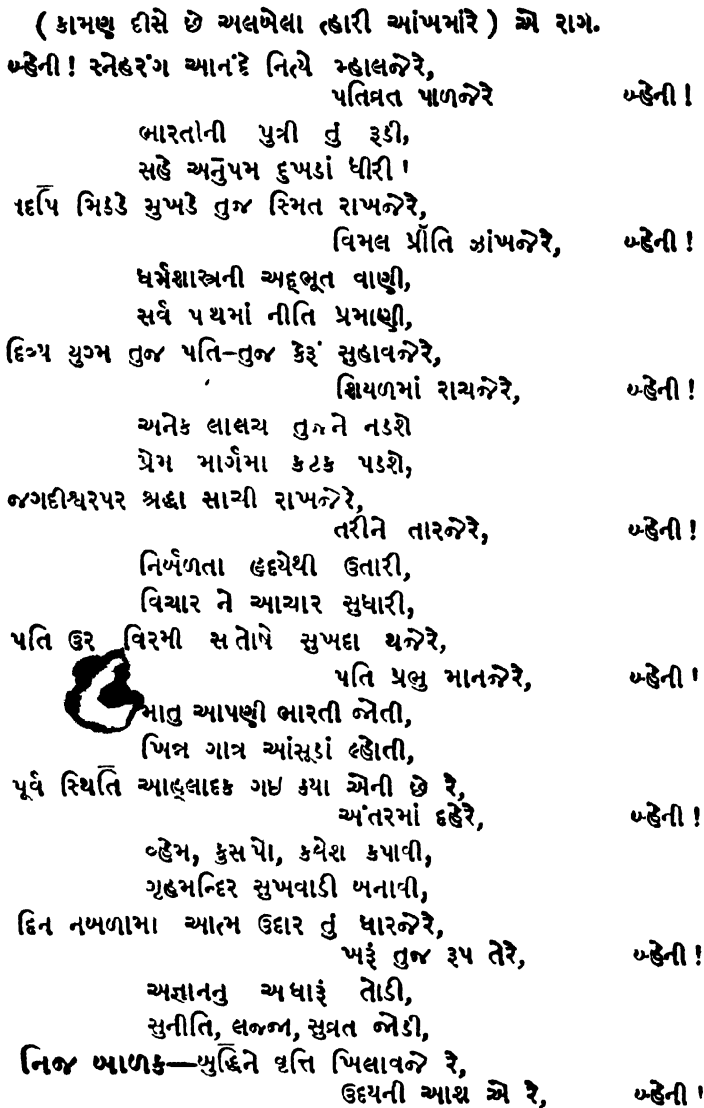 ( કામણ દીસે છે અલબેલા ત્હારી આંખમાંરે ) એ રાગ.
બ્હેની ! સ્નેહરંગ આનંદે નિત્યે મ્હાલજેરે,
પતિવ્રત પાળજેરે બ્હેની !
ભારતોની પુત્રી તું રૂડી,
સહે અનુપમ દુખડાં ધીરી !
યદપિ મિઠડે મુખડે તુજ સ્મિત રાખજેરે,
વિમલ પ્રીતિ ઝાંખજેરે, બ્હેની !
ધર્મશાસ્ત્રની અદ્ભૂત વાણી,
સર્વ પથમાં નીતિ પ્રમાણી,
દિવ્ય યુગ્મ તુજ પતિ–તુજ કેરૂં સુહાવજેરે,
શિયળમાં રાચજેરે, બ્હેની !
અનેક લાલચ તુજને નડશે
પ્રેમ માર્ગમા કટક પડશે,
જગદીશ્વરપર શ્રદ્ધા સાચી રાખજેરે,
તરીને તારજેરે, બ્હેની !
નિર્બળતા હૃદયેથી ઉતારી,
વિચાર ને આચાર સુધારી,
પતિ ઉર વિરમી સતોષે સુખદા થજેરે,
પતિ પ્રભુ માનજેરે, બ્હેની !
માતુ આપણી ભારતી જોતી,
ખિન્ન ગાત્ર આંસૂડાં લ્હોતી,
પૂર્વ સ્થિતિ આહ્લાદક ગઇ કયા એની છે રે,
અંતરમાં દહેરે, બ્હેની !
વ્હેમ, કુસપો, કલેશ કપાવી,
ગૃહમન્દિર સુખવાડી બનાવી,
દિન નબળામા આત્મ ઉદાર તું ધારજેરે,
ખરૂં તુજ રૂપ તેરે, બ્હેની !
અજ્ઞાનનુ અધારૂં તોડી,
સુનીતિ, લજ્જા, સુવ્રત જોડી,
નિજ બાળક—બુદ્ધિને વૃત્તિ ખિલાવજે રે,
ઉદયની આશ એ રે, બ્હેની !